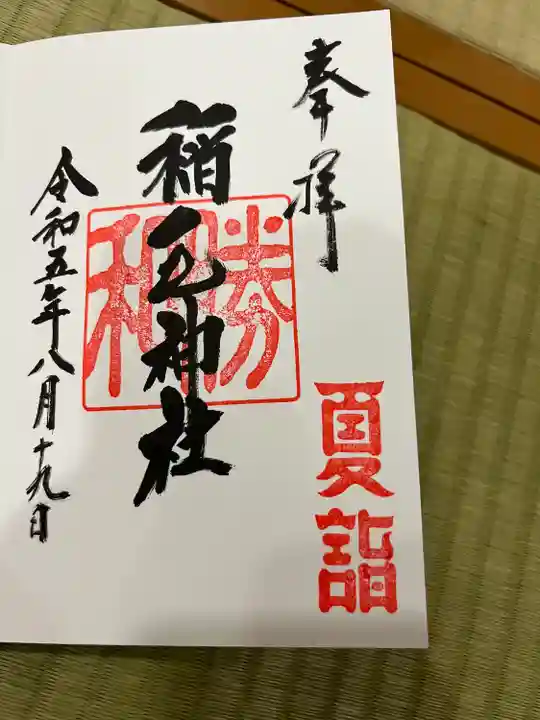 奉拝
夏詣
稲毛神社
勝和
令和五年八月十九日